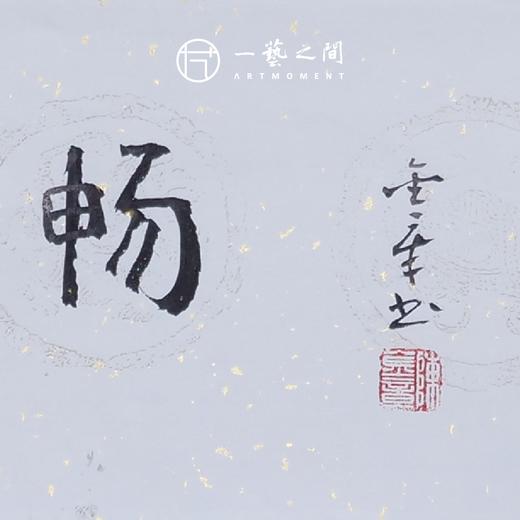 一藝之間
ARTMOMENT
畅
金章书
陳金章